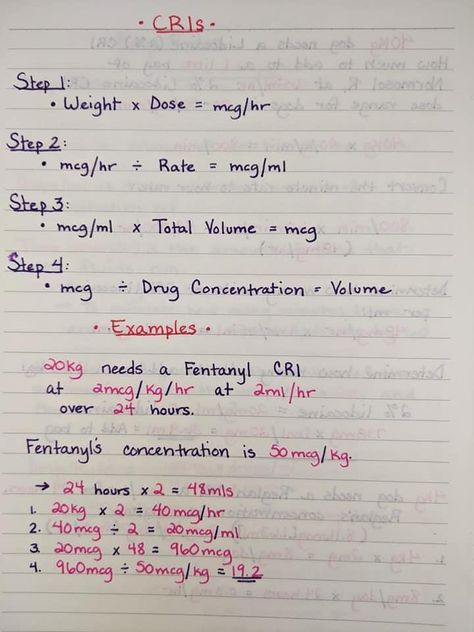 • CRIs •
Step 1:
• Weight x Dose = mcg/hr
Step 2:
• mcg/hr ÷ Rate = mcg/ml
Step 3:
• mcg/ml x Total Volume = mcg
Step 4:
• mcg ÷ Drug Concentration = Volume
• Examples •
20kg needs a Fentanyl CRI
at 2mcg/kg/hr at 2ml/hr
over 24 hours.
Fentanyl's concentration is 50mcg/kg.
→ 24 hours x 2 = 48mls
1. 20kg x 2 = 40mcg/hr
2. 40mcg ÷ 2 = 20mcg/ml
3. 20mcg x 48 = 960mcg
4. 960mcg ÷ 50mcg/kg = 19.2